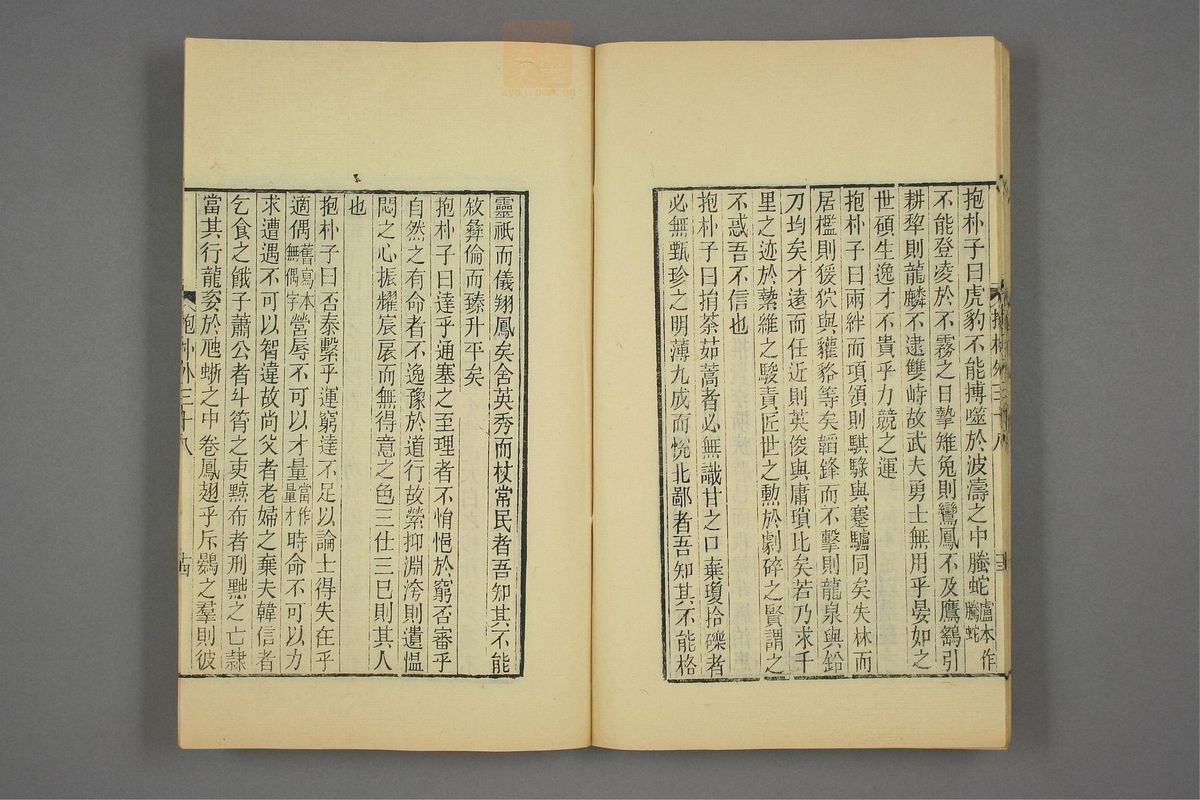 抱朴子曰虎豹不能搏噬於波濤之中螣蛇盧本作騰蛇
不能登凌於不霧之日摯雉兔則鸞鳳不及鷹鷂引
耕犂則龍麟不逮雙峙故武夫勇士無用乎晏如之
世碩生逸才不貴乎力競之運
抱朴子曰兩絆而項領則騏騄與蹇驢同矣失林而
居檻則猨狖與貛貉等矣韜鋒而不擊則龍泉與鉛
刀均矣才遠而任近則英俊與庸瑣比矣若乃求千
里之迹於縶維之駿責匠世之勲於劇碎之賢謂之
不惑吾不信也
抱朴子曰捐荼茹蒿者必無識甘之口棄瓊拾礫者
必無甄珍之明薄九成而悅北鄙者吾知其不能格
靈祇而儀翔鳳矣舍英秀而杖常民者吾知其不能
敘彝倫而臻升平矣
抱朴子曰達乎通塞之至理者不悁悒於窮否審乎
自然之有命者不逸豫於道行故縈抑淵洿則遺愠
悶之心振耀宸扆而無得意之色三仕三已則其人
也
抱朴子曰否泰繫乎運窮達不足以論士得失在乎
適偶舊寫本無偶字營辱不可以才量當作量才時命不可以力
求遭遇不可以智違故尚父者老婦之棄夫韓信者
乞食之餓子蕭公者斗筲之吏黥布者刑黥之亡隸
當其行龍姿於虺蜥之中卷鳳翅乎斥鷃之羣則彼
抱朴外三十八
十三
抱朴外三十八
十四